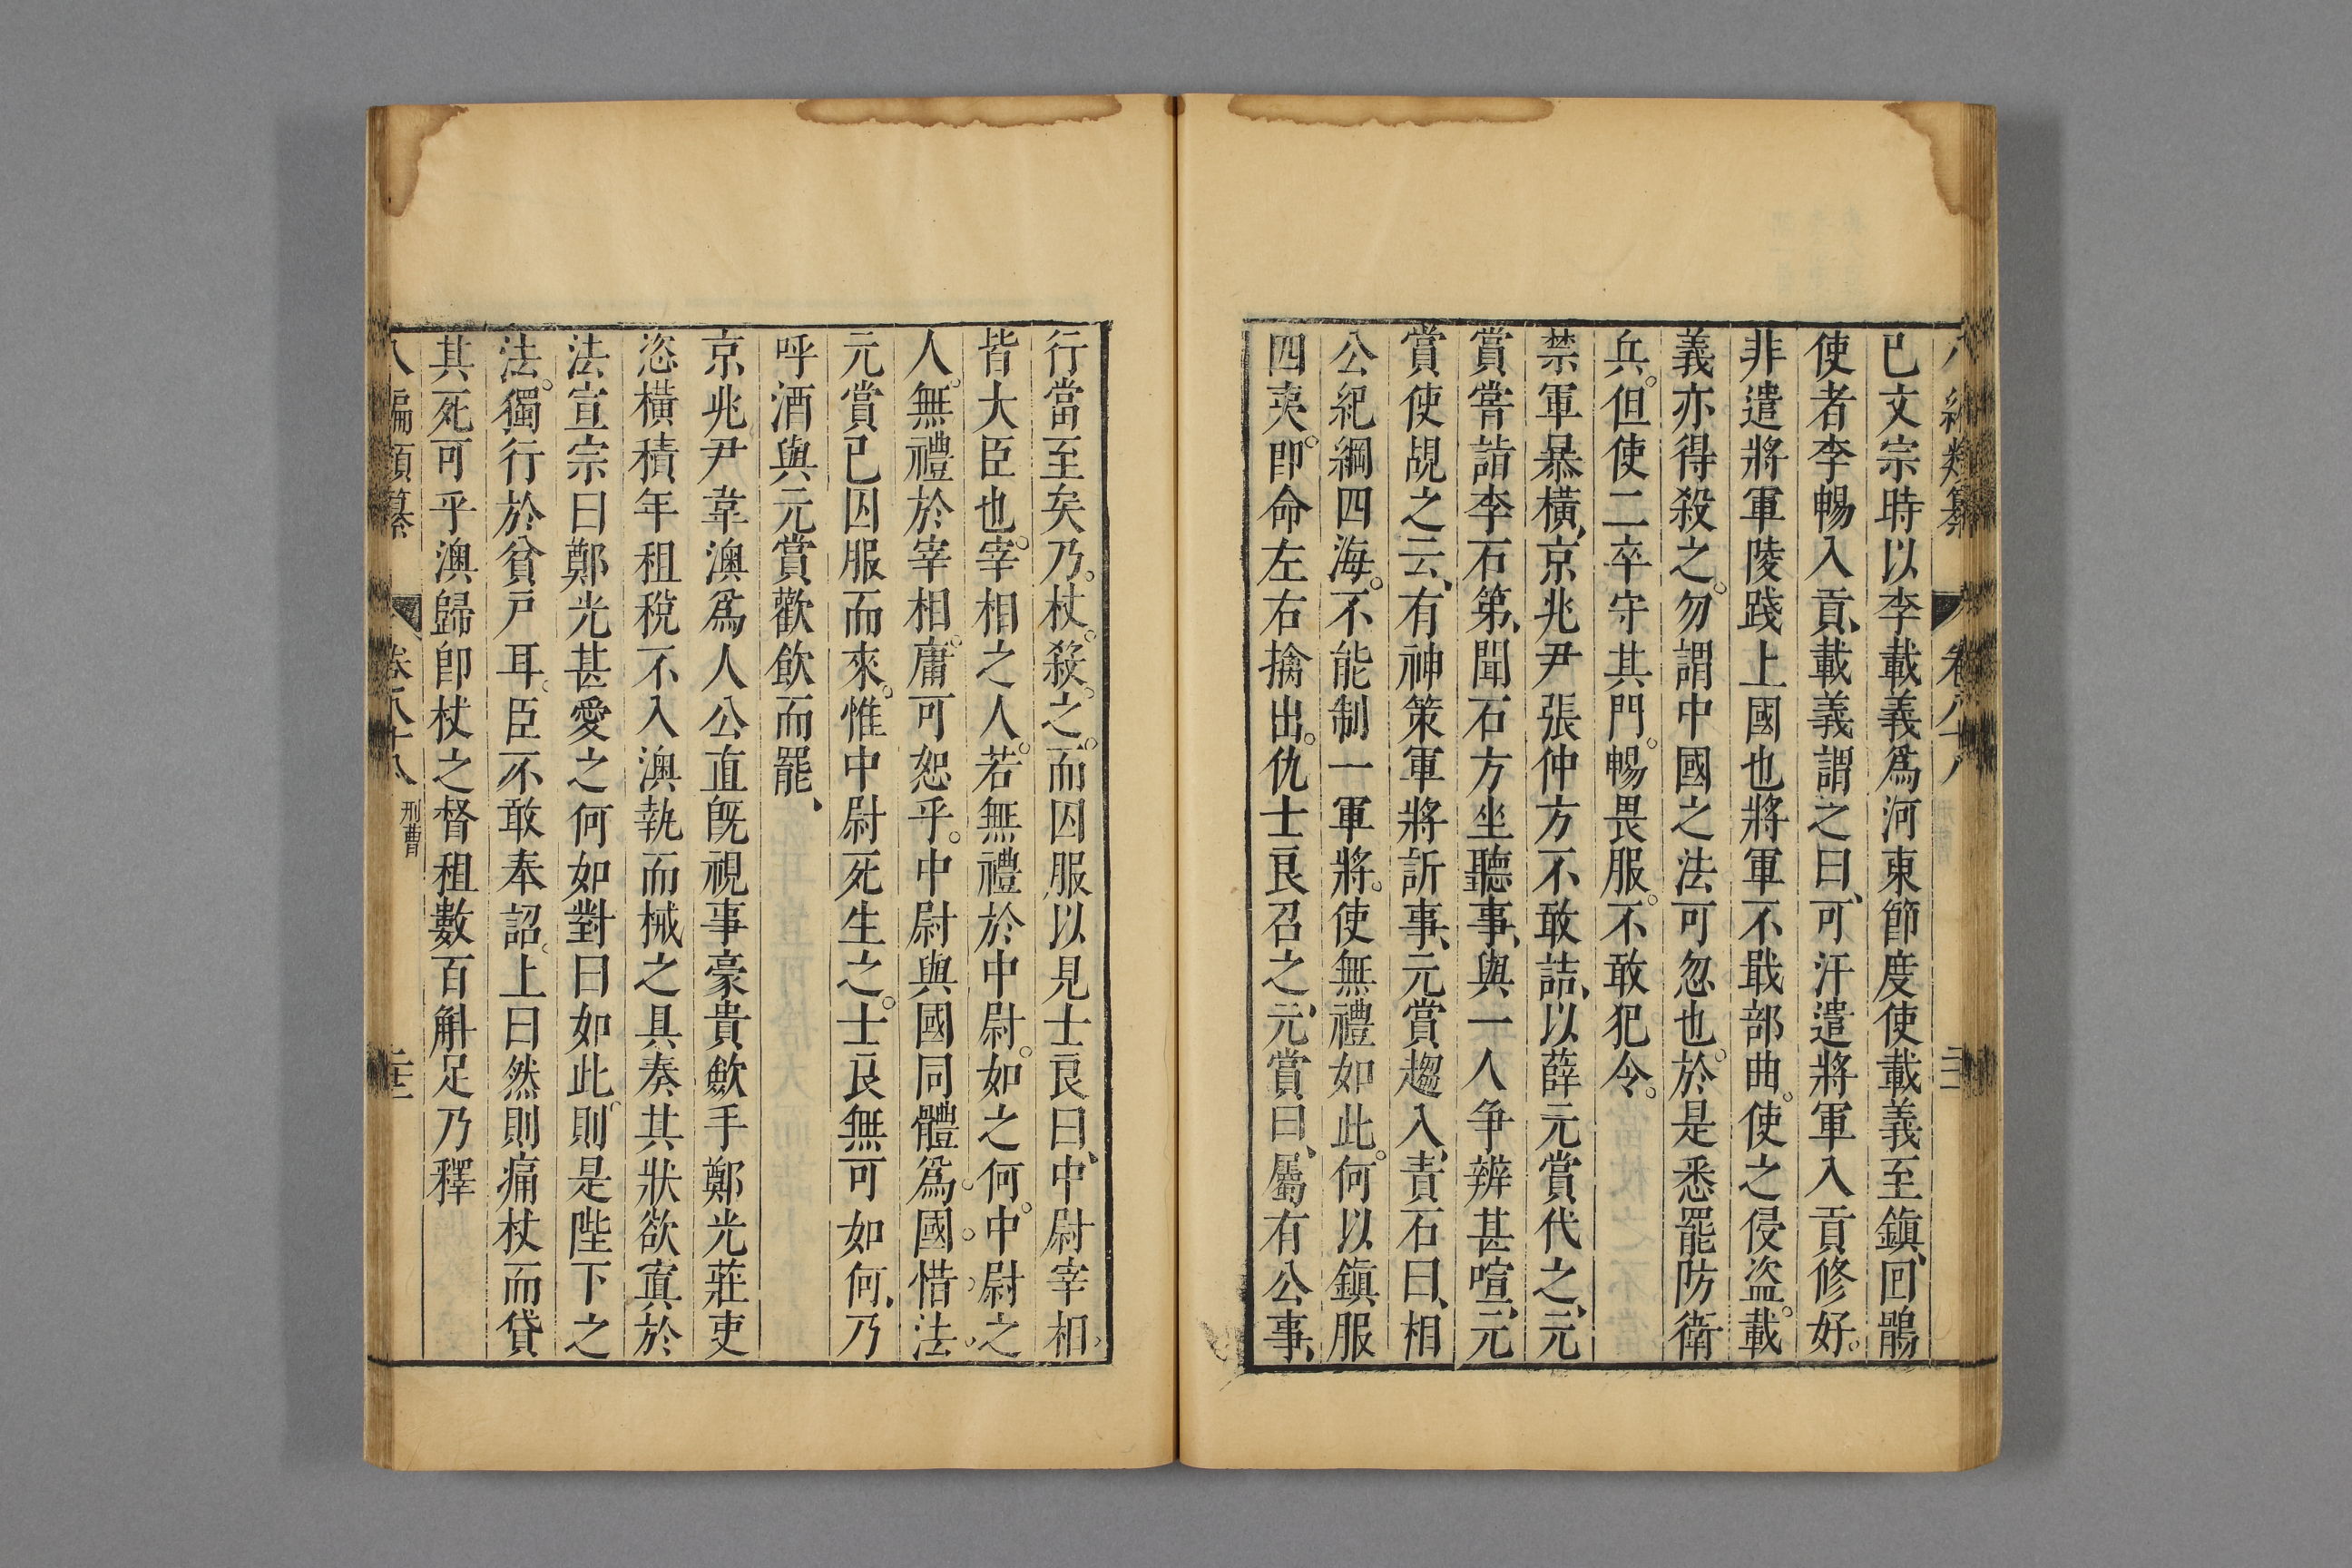 已文宗時以李載義爲河東節度使載義至鎭、回鶻
使者李暢入貢、載義謂之曰、可汗遣將軍入貢修好。
非遣將軍陵踐上國也將軍不戢部曲。使之侵盜。載
義亦得殺之。勿謂中國之法可忽也。於是悉罷防衛
兵。但使二卒守其門。暢畏服。不敢犯令。
禁軍暴橫、京兆尹張仲方不敢詰、以薛元賞代之、元
賞嘗詣李石第、聞石方坐聽事、與一人争辨甚喧、元
賞使覘之云、有神策軍將訴事、元賞趨入、責石曰、相
公紀綱四海。不能制一軍將。使無禮如此。何以鎭服
四夷。即命左右擒出。仇士良召之、元賞曰、屬有公事、
行當至矣乃。杖。殺。之。而囚服以見士良曰、中尉宰相、
皆大臣也。宰相之人。若無禮於中尉。如之何。中尉之
人。無禮於宰相。庸可恕乎。中尉與國同體爲。國。惜。法。
元賞已囚服而來。惟中尉死生之。士良無可如何、乃
呼酒與元賞歡飲而罷、
京兆尹韋澳爲人公直既視事豪貴歛手鄭光莊吏
恣橫積年租稅不入澳執而械之具奏其狀欲寘於
法宣宗曰鄭光甚愛之何如對曰如此則是陛下之
法。獨行於貧戸耳。臣不敢奉詔。上曰然則痛杖而貸
其死可乎澳歸卽杖之督租數百斛足乃釋
八編類纂 卷八十八 刑曹 二十二